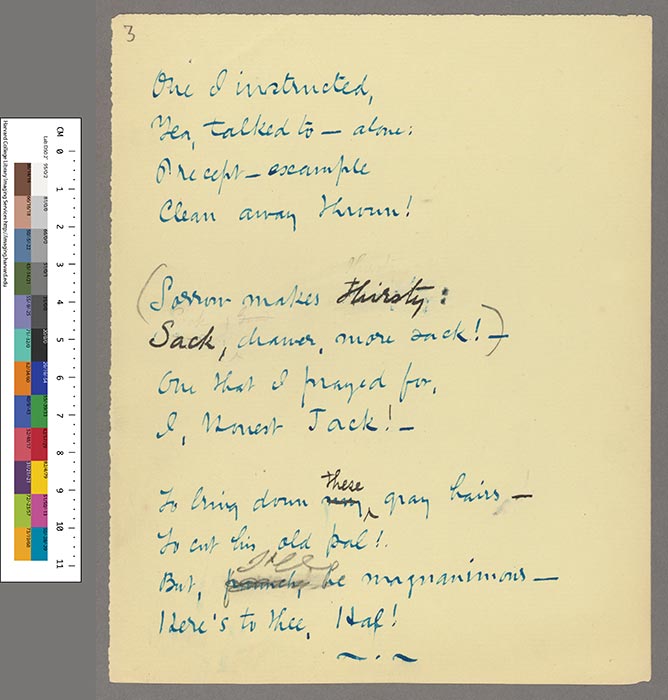 3
One I instructed,
Yea, talked to — alone:
Precept — example
Clean away thrown!
(Sorrow makes thirsty:
Sack, drawer, more sack! —)
One that I prayed for,
I, Honest Jack! —
To bring down my these gray hairs —
To cut his old pal!
But, paunch, I'll be magnanimous —
Here's to thee, Hal!
CM 0 1 2 3 4 5 6 7 8 9 10 11
Harvard College Library Imaging Services http://imaging.harvard.edu